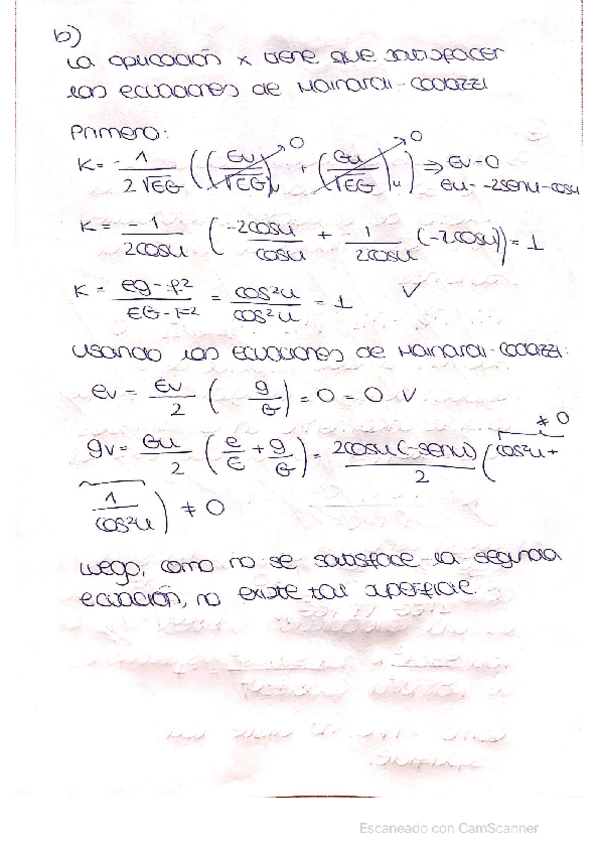 b)
La aplicación x tiene que satisfacer
las ecuaciones de Mainardi-Codazzi
Primero:
K = -1/(2√EG) ((Ev/√EG)v → 0 + (Gu/√EG)u → 0) ⇒ Ev = 0
Gu = -2senu-cosu
K = -1/(2cosu) (-2cosu/cosu + 1/(2cosu) (-2cosu)) = 1
K = (eg-f²)/(EG-F²) = cos²u/cos²u = 1 ✓
Usando las ecuaciones de Mainardi-Codazzi:
ev = Ev/2 ( g/G) = 0 = 0 ✓
gv = Gu/2 (e/E + g/G) = 2cosu(-senu)/2 (cos²u +
≠ 0
1/cos²u) ≠ 0
Luego, como no se satisface la segunda
ecuación, no existe tal superficie.
Escaneado con CamScanner